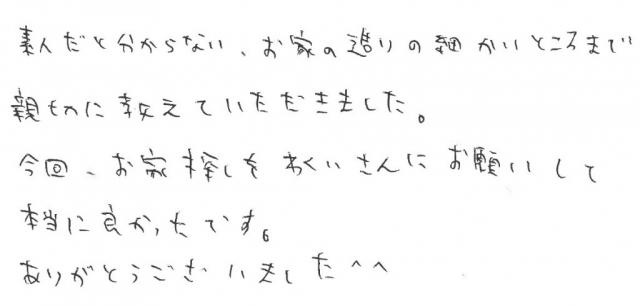 素人だと分からない、お家の造りの細かいところまで
親切に教えていただきました。
今回、お家探しをわくいさんにお願いして
本当に良かったです。
ありがとうございました^^